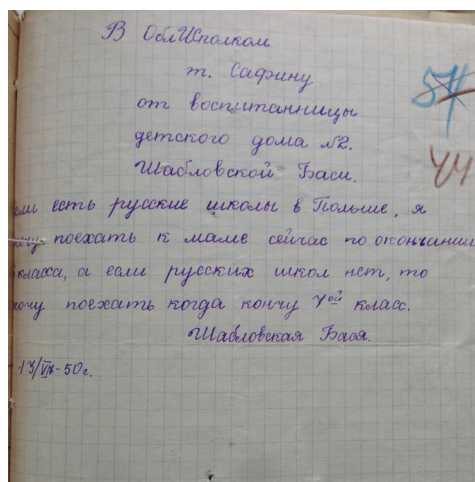 В ОблИсполком
т. Сафину
от воспитанницы
детского дома №2.
Шабловской Баси.
если есть русские школы в Польше, я
хочу поехать к маме сейчас по окончании
класса, а если русских школ нет, то
хочу поехать когда кончу 7ой класс.
Шабловская Бася.
50г.